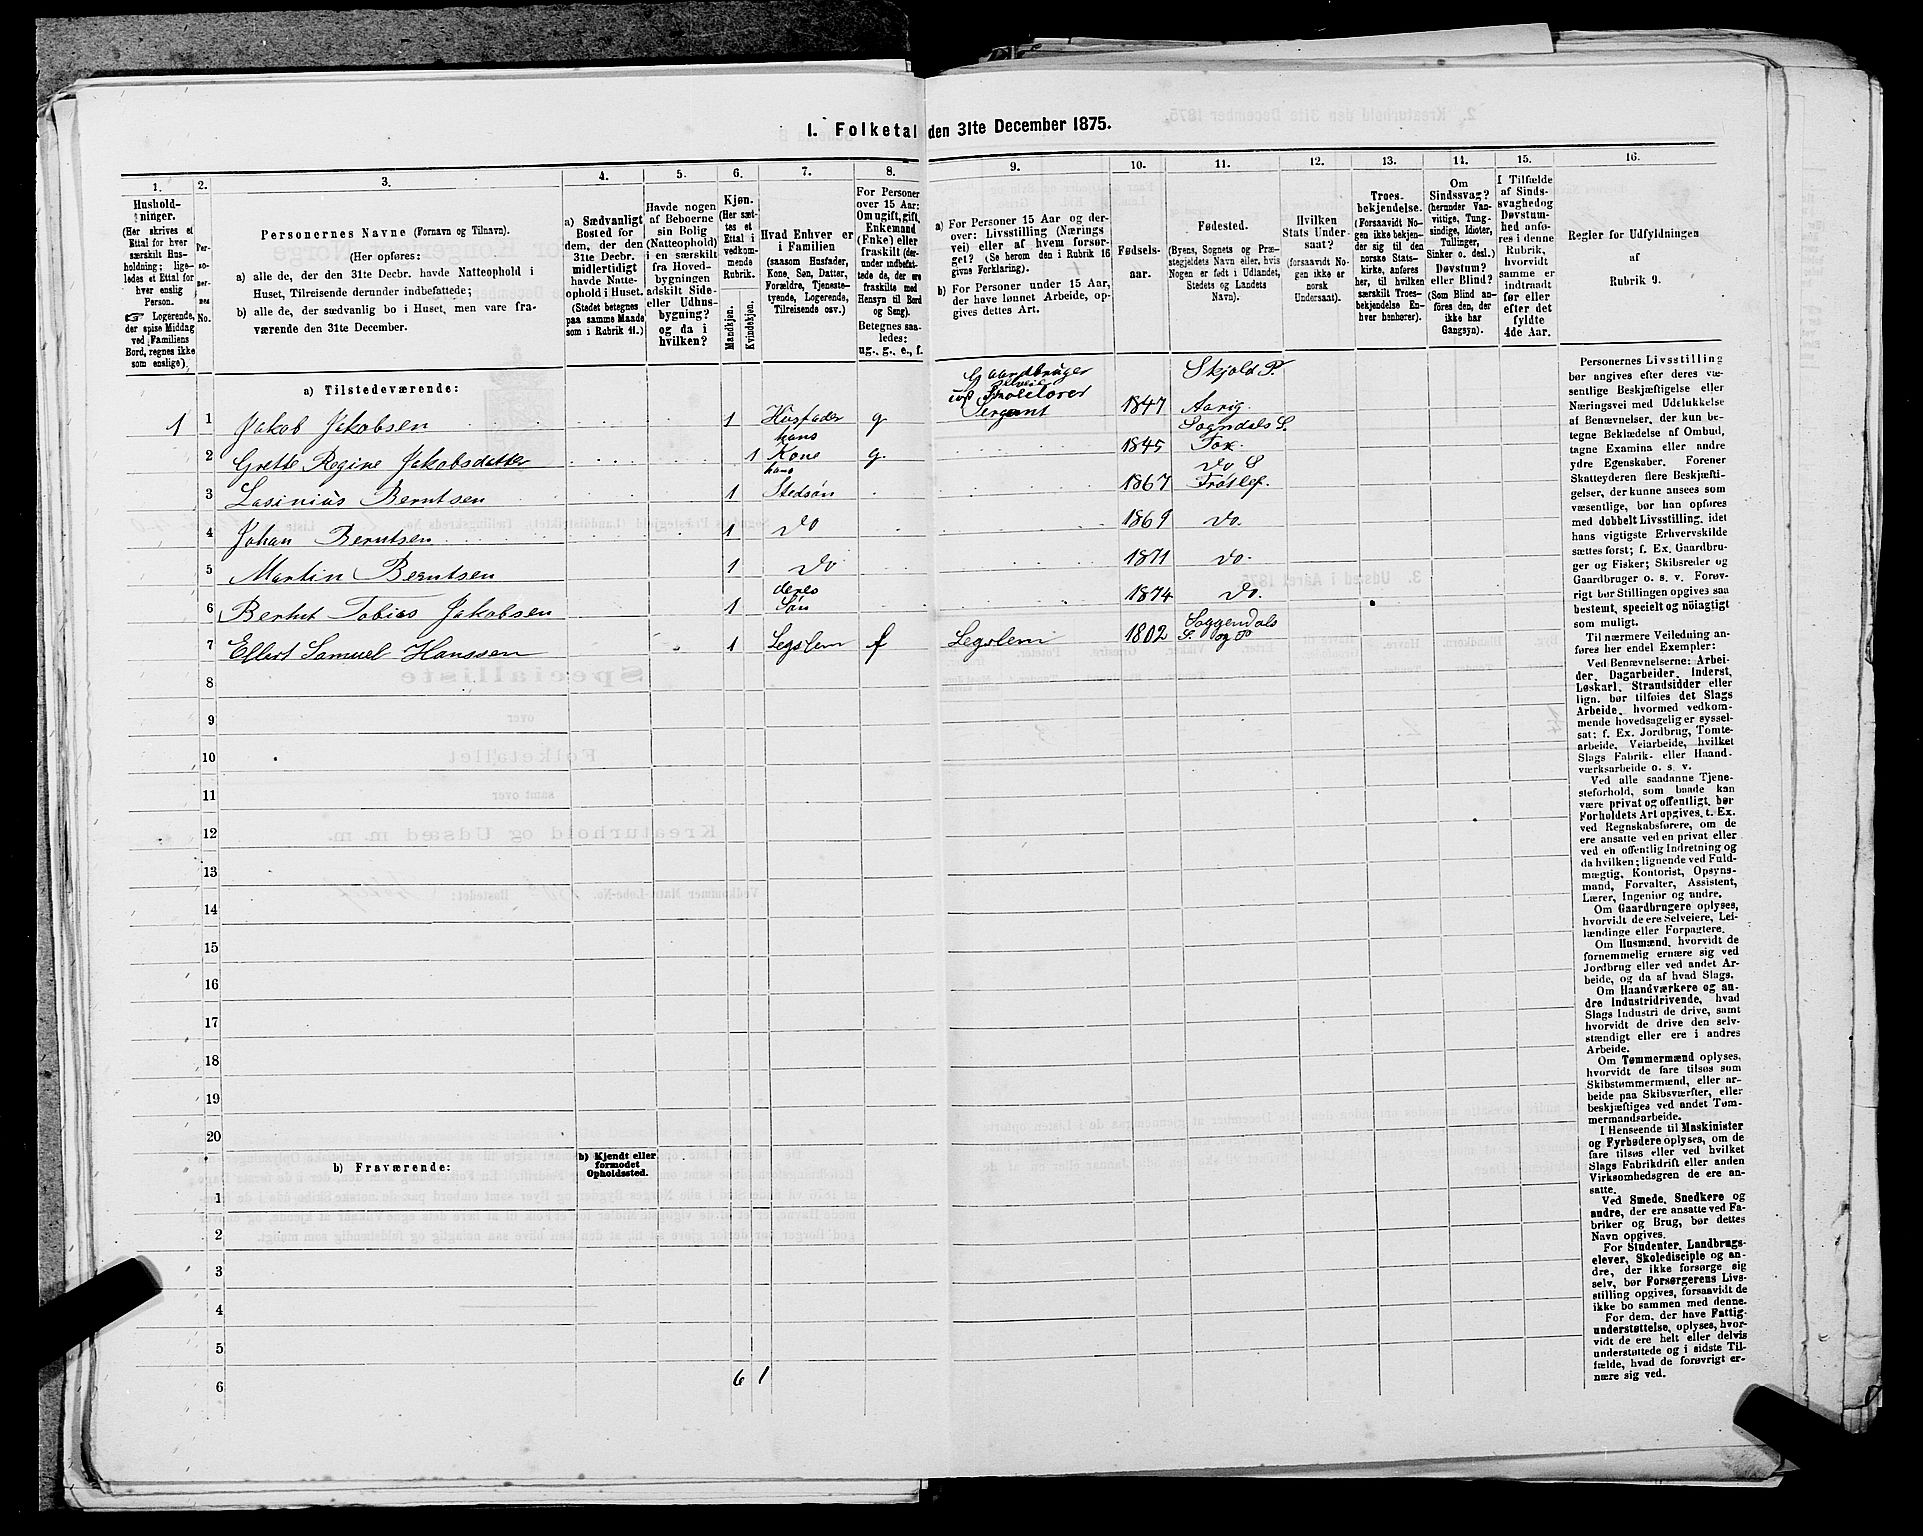 1. Folketal den 31te December 1875.
1.
2.
3.
4.
5.
6.
7.
8.
9.
10.
11.
12.
13.
14.
15.
16.
Hushold-
ninger.
(Her skrives et
Ettal for hver
særskilt Hus-
holdning; lige-
ledes et Ettal for
hver enslig
Person.
☞ Logerende,
der spise Middag
ved Familiens
Bord, regnes ikke
som enslige).
Per-
so-
ner-
nes
No.
Personernes Navne (Fornavn og Tilnavn).
(Her opføres:
a) alle de, der den 31te Decbr. havde Natteophold i
Huset, Tilreisende derunder indbefattede;
b) alle de, der sædvanlig bo i Huset, men vare fra-
værende den 31te December.
a) Sædvanligt
Bosted for
dem, der den
31te Decbr.
midlertidigt
havde Natte-
ophold i Huset.
(Stedet betegnes
paa samme Maade
som i Rubrik 11.)
Havde nogen
af Beboerne
sin Bolig
(Natteophold)
i en særskilt
fra Hoved-
bygningen
adskilt Side-
eller Udhus-
bygning?
og da i
hvilken?
Kjøn.
(Her sæt-
tes et
Ettal i
vedkom-
mende
Rubrik.
Mandkjøn.
Kvindekjøn.
Hvad Enhver er
i Familien
(saasom Husfader,
Kone, Søn, Datter,
Forældre, Tjeneste-
tyende, Logerende,
Tilreisende osv.)
For Personer
over 15 Aar:
Om ugift, gift,
Enkemand
(Enke) eller
fraskilt (der-
under indbefat-
tede de, der ere
fraskilte med
Hensyn til Bord
og Seng).
Betegnes saa-
ledes:
ug., g., e., f.
a) For Personer 15 Aar og der-
over: Livsstilling (Nærings
vei) eller af hvem forsør-
get? (Se herom den i Rubrik 16
givne Forklaring).
b) For Personer under 15 Aar,
der have lønnet Arbeide, op-
gives dettes Art.
Fødsels-
aar.
Fødested.
(Byens, Sognets og Præ-
stegjeldets Navn eller, hvis
Nogen er født i Udlandet,
Stedets og Landets
Navn).
Hvilken
Stats Under-
saat?
(forsaavidt No-
gen ikke er
norsk
Undersaat).
Troes-
bekjendelse.
(Forsaavidt No-
gen ikke bekjen-
der sig til den
norske Stats-
kirke, anføres
her, til hvilken
særskilt Troes-
bekjendelse En-
hver henhører).
Om
Sindssvag?
(herunder Van-
vittige, Tung-
sindige, Idioter,
Tullinger,
Sinker o. desl.)
Døvstum?
eller Blind?
(Som Blind an-
føres den, der
ikke har
Gangsyn).
I Tilfælde
af Sinds-
svaghed og
Døvstum-
hed anfø-
res i denne
Rubrik,
hvorvidt
samme er
indtraadt
før eller
efter det
fyldte
4de Aar.
Regler for Udfyldningen
af
Rubrik 9.
a) Tilstedeværende:
Gaardbruger
Selveier
Skolelærer
Skjold P.
1 1 Jakob Jakobsen 1 Husfader g Sergent 1847 Aarig.
hans Sogndals S.
2 Grette Regine Jakobsdatter 1 Kone g. 1845 Fox.
hans Do S
3 Lasinius Berntsen 1 Stedsøn 1867 Frøslef.
4 Johan Berntsen 1 Do 1869 Do.
5 Martin Berntsen 1 Do 1871 Do.
deres
6 Bernt Tobias Jakobsen 1 Søn 1874 Do.
Soggendals
7 Ellert Samuel Hanssen 1 Legslem f Legslem 1802 S. og P
8
9
10
11
12
13
14
15
16
17
18
19
20
b) Fraværende:
b) Kjendt eller
formodet
Opholdssted.
1
2
3
4
5
6
6 1
Personernes Livsstilling
bør angives efter deres væ-
sentlige Beskjæftigelse eller
Næringsvei med Udelukkelse
af Benævnelser, der kun be-
tegne Beklædelse af Ombud,
tagne Examina eller andre
ydre Egenskaber. Forener
Skatteyderen flere Beskjæfti-
gelser, der kunne ansees som
væsentlige, bør han opføres
med dobbelt Livsstilling, idet
hans vigtigste Erhvervskilde
sættes først; f. Ex. Gaardbru-
ger og Fisker; Skibsreder og
Gaardbruger o. s. v. Forøv-
rigt bør Stillingen opgives saa
bestemt, specielt og nöiagtigt
som muligt.
Til nærmere Veiledning an-
føres her endel Exempler:
Ved Benævnelserne: Arbei-
der, Dagarbeider, Inderst,
Løskarl, Strandsidder eller
lign. bør tilføies det Slags
Arbeide, hvormed vedkom-
mende hovedsagelig er syssel-
sat; f. Ex. Jordbrug, Tomte-
arbeide, Veiarbeide, hvilket
Slags Fabrik- eller Haand-
værksarbeide o. s. v.
Ved alle saadanne Tjene-
steforhold, som baade kan
være privat og offentligt, bør
Forholdets Art opgives, t. Ex.
ved Regnskabsførere, om de
ere ansatte ved en privat eller
ved en offentlig Indretning og
da hvilken; lignende ved Fuld-
mægtig, Kontorist, Opsyns-
mand, Forvalter, Assistent,
Lærer, Ingeniør og andre.
Om Gaardbrugere oplyses,
hvorvidt de ere Selveiere, Lei-
lændinge eller Forpagtere.
Om Husmænd, hvorvidt de
fornemmelig ernære sig ved
Jordbrug eller ved andet Ar-
beide, og da af hvad Slags.
Om Haandværkere og an-
dre Industridrivende, hvad
Slags Industri de drive, samt
hvorvidt de drive den selv-
stændigt eller ere i andres
Arbeide.
Om Tømmermænd oplyses,
hvorvidt de fare tilsøs som
Skibstømmermænd, eller ar-
beide paa Skibsværfter, eller
beskjæftiges ved andet Tøm-
mermandsarbeide.
I Henseende til Maskinister
og Fyrbødere oplyses, om de
fare tilsøs eller ved hvilket
Slags Fabrikdrift eller anden
Virksomhedsgren de ere an-
satte.
Ved Smede, Snedkere og
andre, der ere ansatte ved Fa-
briker og Brug, bør dettes
Navn opgives.
For Studenter, Landbrugs-
elever, Skoledisciple og an-
dre, der ikke forsørge sig
selv, bør Forsørgerens Livs-
stilling opgives, forsaavidt de
ikke bo sammen med denne.
For dem, der have Fattig-
understøttelse, oplyses, hvor-
vidt de ere helt eller delvis
understøttede og i sidste Til-
fælde, hvad de forøvrigt er-
nære sig ved.